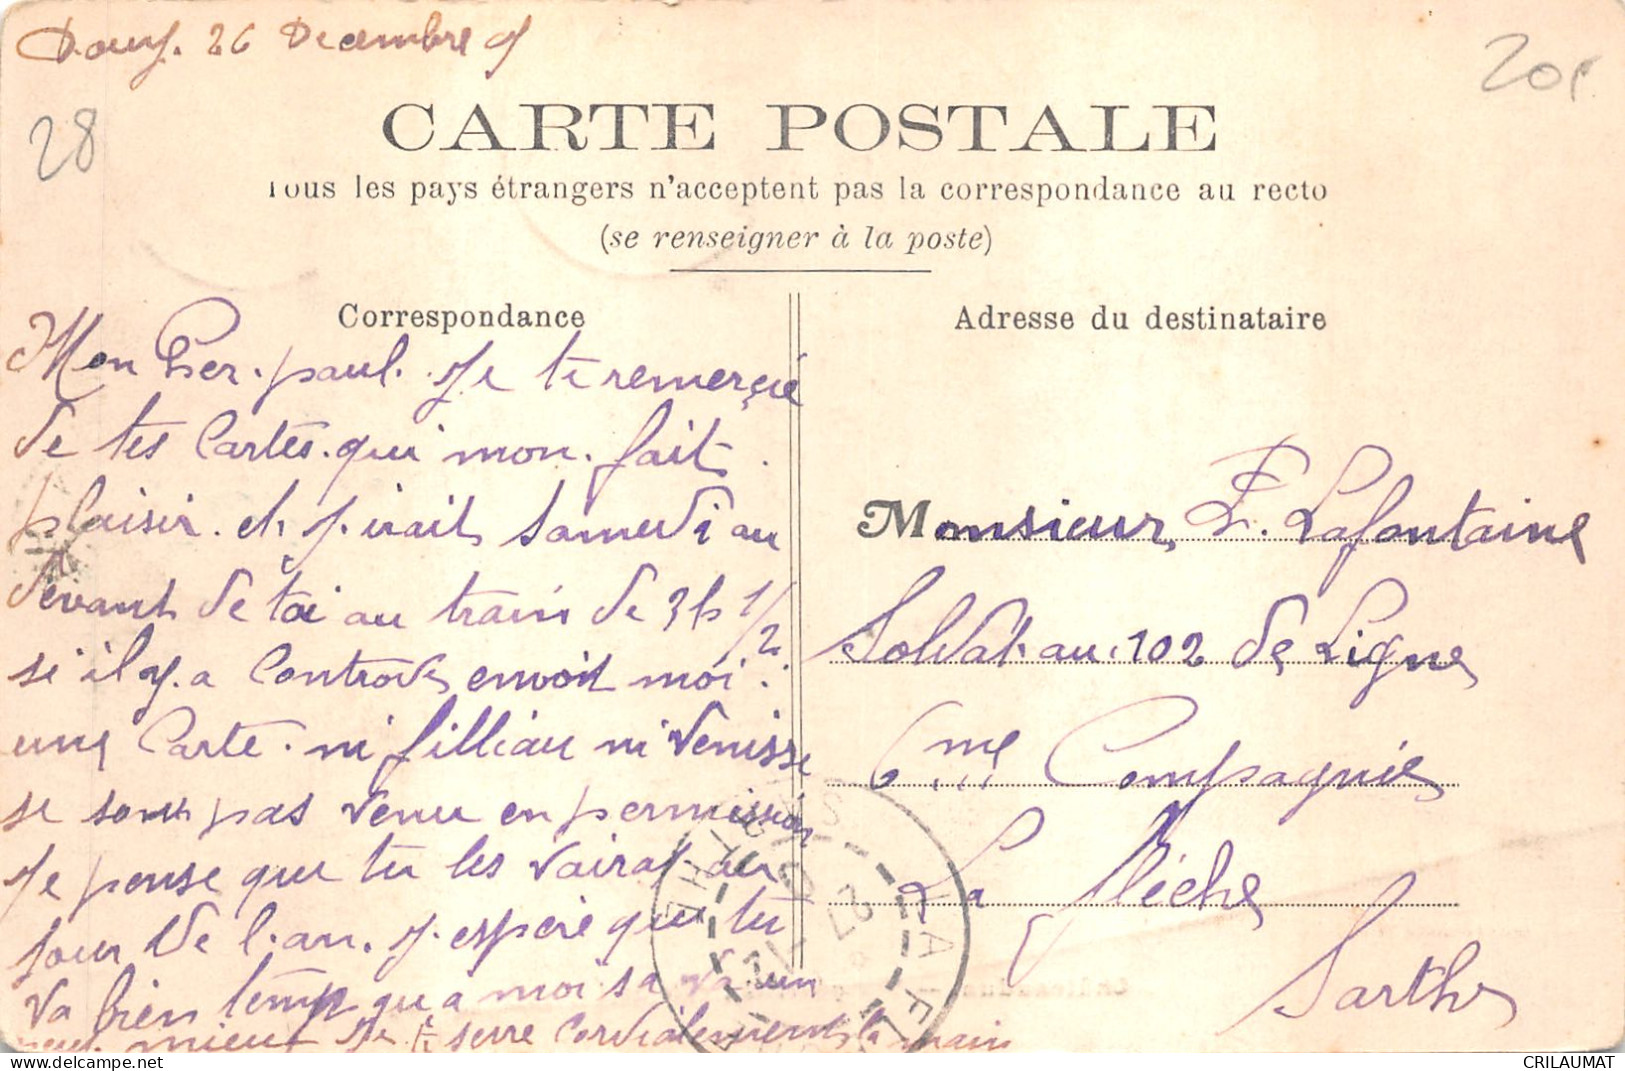 Douy. 26 Decembre
28
CARTE POSTALE
Tous les pays étrangers n'acceptent pas la correspondance au recto
(se renseigner à la poste)
Correspondance
Mon Cher. paul. Je te remercie
de tes Cartes. qui mon. fait.
plaisir. et j. irait samedi au
devant de toi au train de 3h 1/2
si il y. a Controde envoit moi.
une Carte. ni filliau ni Venisse
se sont pas venu en permission
Je pense que tu les vairat au
jour de l. an. J. espere que tu
va bien temp qu a moi sa va un
peu. mieux Je te serre Cordialement la main
Adresse du destinataire
Monsieur, E. Lafontaine
Soldat au 102 de Ligne
6me Compagnie
La flèche
Sarthe
LA FLÈCHE
27
SARTHE
CRILAUMAT